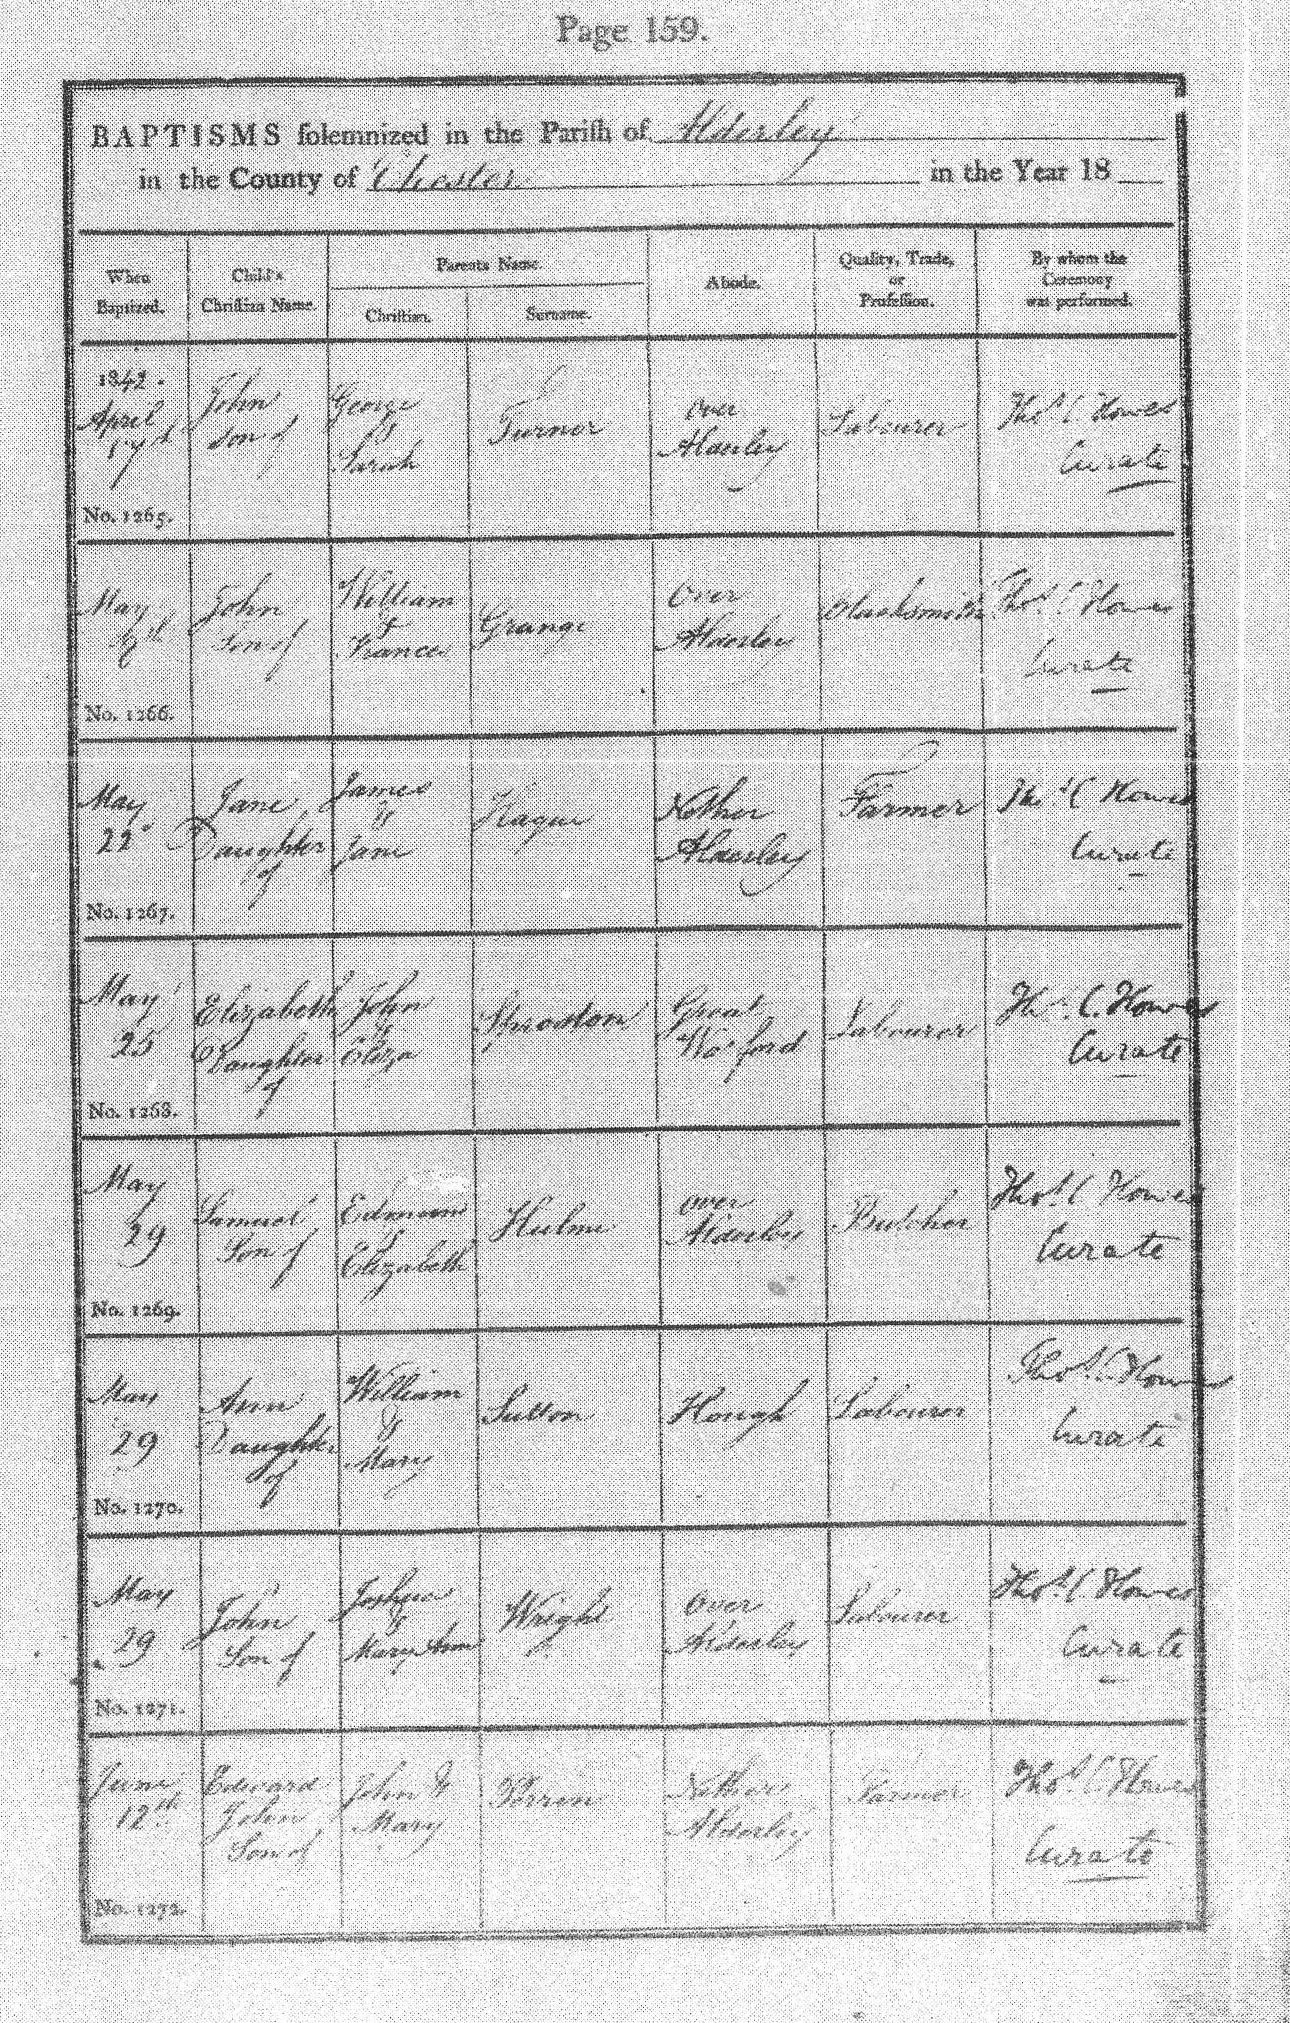 Page 159.
BAPTISMS solemnized in the Parish of Alderley
in the County of Chester in the Year 18
When Baptized.
Child's Christian Name.
Parents Name.
Christian.
Surname.
Abode.
Quality, Trade, or Profession.
By whom the Ceremony was performed.
1842.
April
17th
No. 1265.
John
Son of
George
&
Sarah
Turner
Over
Alderley
Labourer
Thos. C Howes
Curate
May
No. 1266.
John
Son of
William
&
Frances
Grange
Over
Alderley
Blacksmith
Thos. C Howes
Curate
May
22
No. 1267.
Jane
Daughter
of
James
&
Jane
Hague
Nether
Alderley
Farmer
Thos. C Howes
Curate
May
25
No. 1268.
Elizabeth
Daughter
of
John
&
Eliza
Sproston
Great
Warford
Labourer
Thos. C. Howes
Curate
May
29
No. 1269.
Samuel
Son of
Edmund
&
Elizabeth
Hulme
Over
Alderley
Butcher
Thos. C Howes
Curate
May
29
No. 1270.
Ann
Daughter
of
William
&
Mary
Sutton
Hough
Labourer
Thos. C Howes
Curate
May
29
No. 1271.
John
Son of
Joshua
&
Mary Ann
Wright
Over
Alderley
Labourer
Thos. C Howes
Curate
June
12th
No. 1272.
Edward
John
Son of
John &
Mary
Perrin
Nether
Alderley
Farmer
Thos. C. Howes
Curate